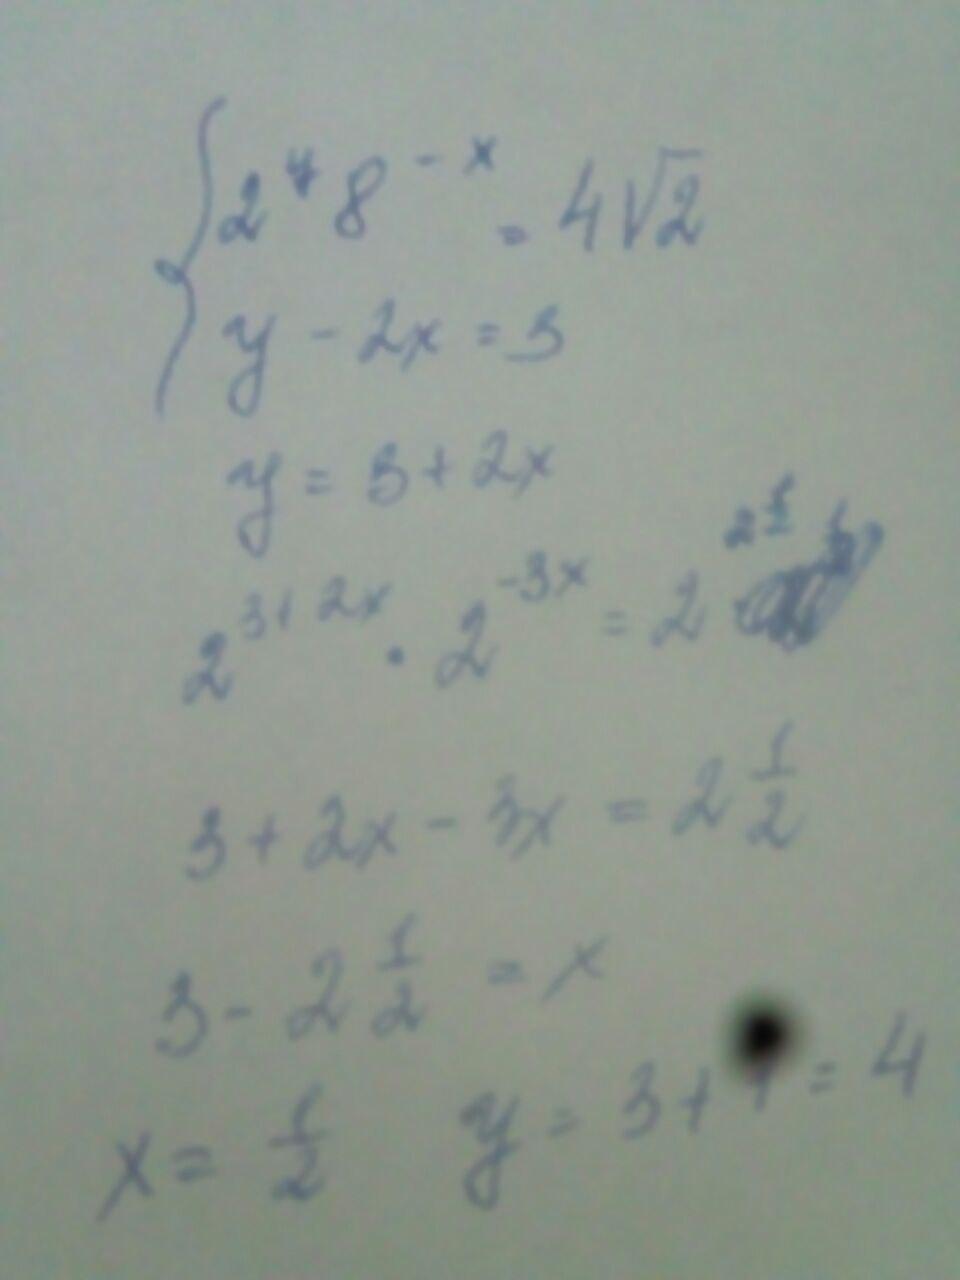 2^y 8^{-x} = 4√2
y - 2x = 3
y = 3 + 2x
2^{3+2x} · 2^{-3x} = 2^{2 1/2}
3 + 2x - 3x = 2 1/2
3 - 2 1/2 = x
x = 1/2 y = 3 + 1 = 4